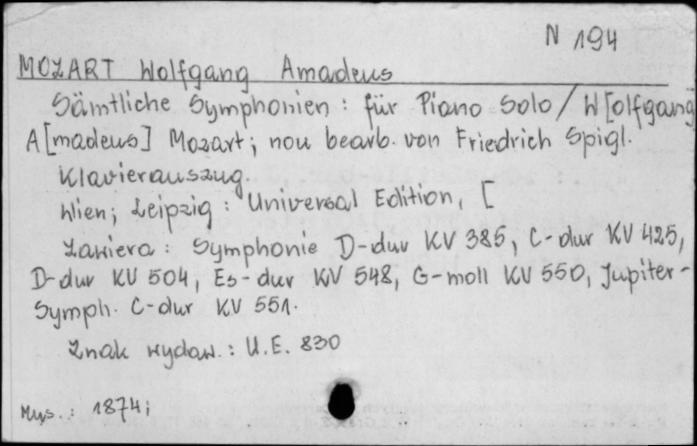 N 194
MOZART Wolfgang Amadeus
Sämtliche Symphonien : für Piano Solo / W[olfgang
A[madeus] Mozart ; nou bearb. von Friedrich Spigl.
Klavierauszug.
Wien ; Leipzig : Universal Edition, [
Zawiera : Symphonie D-dur KV 385, C-dur KV 425,
D-dur KV 504, Es-dur KV 548, G-moll KV 550, Jupiter-
Symph. C-dur KV 551.
Znak wydaw. : U.E. 830
Mus. : 1874 ;